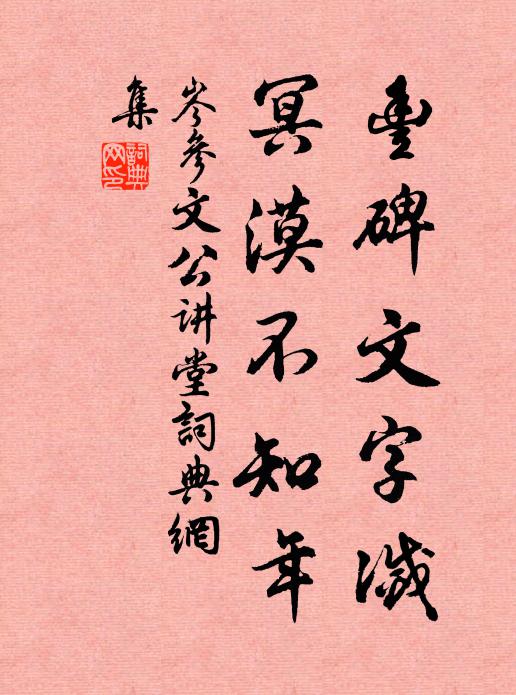 豊碑文字滅
冥漠不知年
岑參文公讲堂詞典網
集
詞典网印